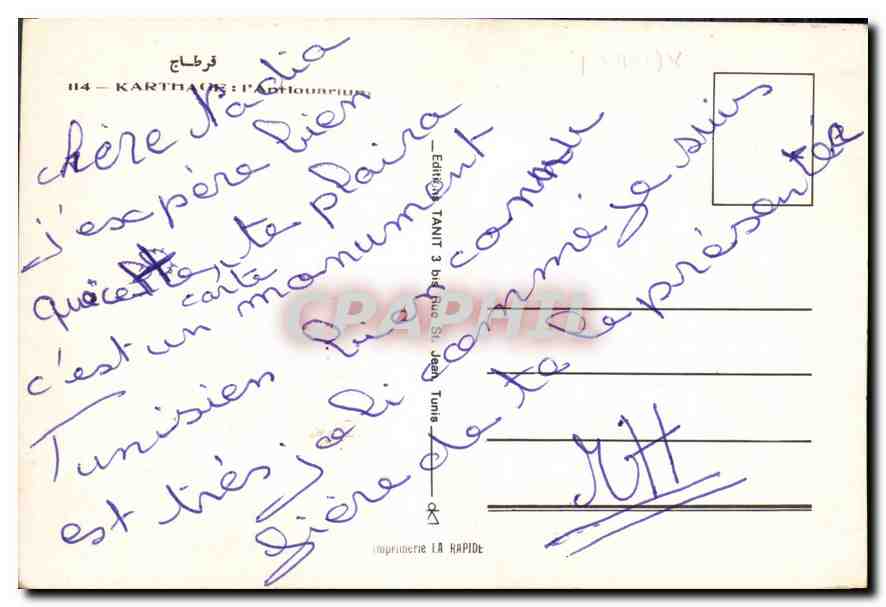 قرطاج
114 - KARTHAGE : l'Antiquarium
chère Nadia
j'expère bien
que cette te plaira
carte
c'est un monument
Tunisien bien connu de
est très joli comme je suis
fière de te le présentée
MH
Editions TANIT 3 bis, Rue St. Jean, Tunis
CPAPHIL
Imprimerie LA RAPIDE